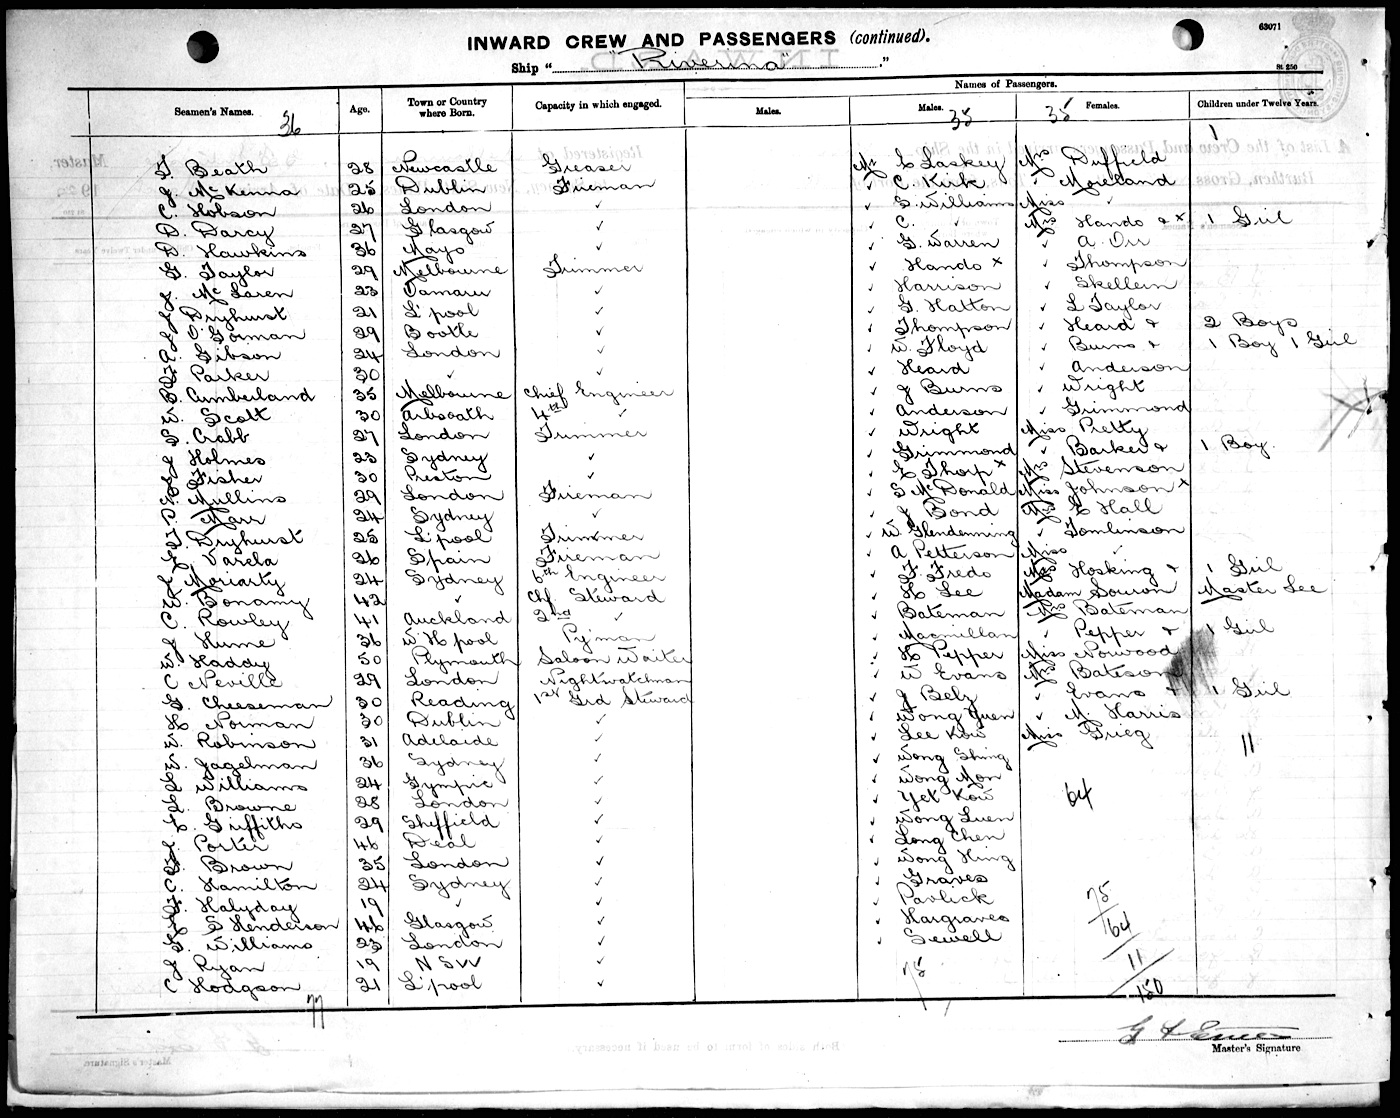 63071
INWARD CREW AND PASSENGERS (continued).
Ship "Riverina"
St 250
Names of Passengers.
Seamen's Names. Age. Town or Country where Born. Capacity in which engaged. Males. Males. Females. Children under Twelve Years.
36 35 35 1
Beath 28 Newcastle Greaser Mr C Laskey Mrs Duffield
J. McKenna 25 Dublin Fireman ✓ C. Kirk ✓ Moreland
C. Hobson 26 London ✓ ✓ S. Williams Miss ✓
D. Darcy 27 Glasgow ✓ ✓ C. ✓ Mrs Hando & x 1 Girl
D. Hawkins 36 Mayo ✓ ✓ G. Warren ✓ A. Orr
G. Taylor 29 Melbourne Trimmer ✓ Hando x ✓ Thompson
J. McLaren 23 Tamaru ✓ ✓ Harrison ✓ Skellern
J. Dryhurst 21 L'pool ✓ ✓ G. Hatton ✓ L Taylor
J. O'Gorman 29 Bootle ✓ ✓ Thompson ✓ Heard & 2 Boys
A. Gibson 24 London ✓ ✓ W. Floyd ✓ Burns & 1 Boy 1 Girl
Parker 30 ✓ ✓ ✓ Heard ✓ Anderson
Cumberland 35 Melbourne Chief Engineer ✓ J Burns ✓ Wright
W. Scott 30 Arbroath 4th ✓ ✓ Anderson ✓ Grimmond
Crabb 27 London Trimmer ✓ Wright Miss Pretty
J. Holmes 23 Sydney ✓ ✓ Grimmond ✓ Barker & 1 Boy.
J. Fisher 30 Preston ✓ ✓ E Thorp x Mrs Stevenson
Mullins 29 London Fireman ✓ S McDonald Miss Johnson x
C. Marr 24 Sydney ✓ ✓ J Bond Mrs E Hall
Dryhurst 25 L'pool Trimmer ✓ W Glendenning ✓ Tomlinson
Varela 26 Spain Fireman ✓ A Petterson Miss ✓
J. Moriarty 24 Sydney 6th Engineer ✓ F. Fredo Mrs Hosking & 1 Girl
E. Bonamy 42 ✓ Chf. Steward ✓ H Lee Madam Souron Master Lee
C. Rowley 41 Auckland 2nd ✓ ✓ Bateman Mrs Bateman
J. Hume 36 W H pool P'man ✓ Macmillan ✓ Pepper & 1 Girl
W. Haddy 50 Plymouth Saloon Waiter ✓ H Pepper Miss Norwood
C Neville 29 London Nightwatchman ✓ W Evans Mrs Bateson
G. Cheeseman 30 Reading 1st Grd Steward ✓ J Belz ✓ Evans & 1 Girl
H Norman 30 Dublin ✓ ✓ Wong Yuen ✓ M. Harris
W. Robinson 31 Adelaide ✓ ✓ Lee Kow Miss Grieg 11
W. Jagelman 36 Sydney ✓ ✓ Wong Shing
Williams 24 Gympie ✓ ✓ Wong Mon
L. Browne 28 London ✓ ✓ Yet Kow 64
Griffiths 29 Sheffield ✓ ✓ Wong Luen
J. Porter 46 Deal ✓ ✓ Long Chen
Brown 35 London ✓ ✓ Wong Hing
C. Hamilton 24 Sydney ✓ ✓ Graves
Halyday 19 ✓ ✓ ✓ Pavlick 75
S Henderson 46 Glasgow ✓ ✓ Hargraves 64
G. Williams 23 London ✓ ✓ Sewell
J Ryan 19 N S W ✓ 75 11
C Hodgson 21 L'pool ✓ 150
77
Master's Signature